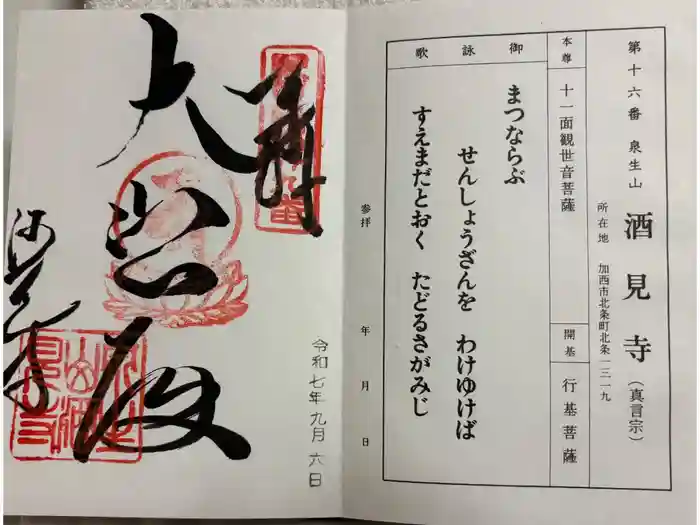 第十六番 泉生山 酒見寺(真言宗)
所在地 加西市北条町北条一三一九
本尊 十一面観世音菩薩
開基 行基菩薩
御詠歌
まつならぶ
せんしょうざんを わけゆけば
すえまだとおく たどるさがみじ
参拝 年 月 日
奉拝
大悲殿
酒見寺
令和七年九月六日